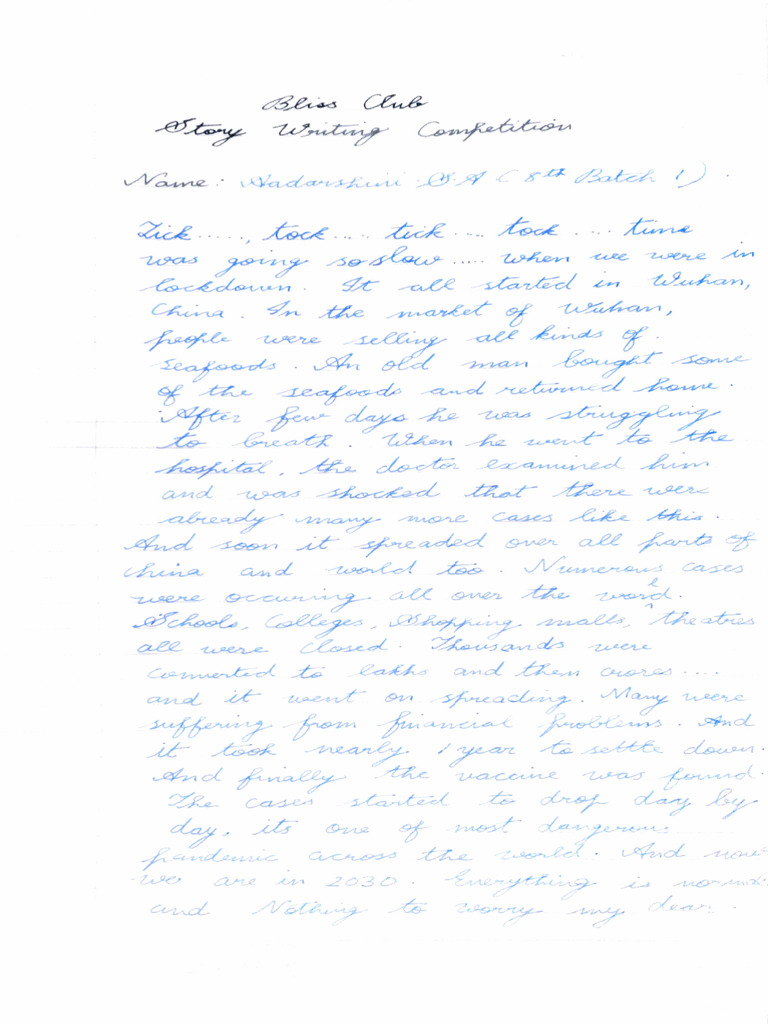 Bliss Club
Story Writing Competition
Name: Aadarshini S.A (8th Batch 1).
Tick....., tock.... tick.... tock.... time
was going so slow..... when we were in
lockdown. It all started in Wuhan,
China. In the market of Wuhan,
people were selling all kinds of.
seafoods. An old man bought some
of the seafoods and returned home.
After few days he was struggling
to breath. When he went to the
hospital, the doctor examined him
and was shocked that there were
already many more cases like this.
And soon it spreaded over all parts of
china and world too. Numerous cases
were occuring all over the world.
Schools, Colleges, Shopping malls, theatres
all were closed. Thousands were
converted to lakhs and them crores....
and it went on spreading. Many were
suffering from financial problems. And
it took nearly 1 year to settle down.
And finally the vaccine was found.
The cases started to drop day by
day, its one of most dangerous
pandemic across the world. And now
we are in 2030. Everything is normal
and Nothing to worry my dear.